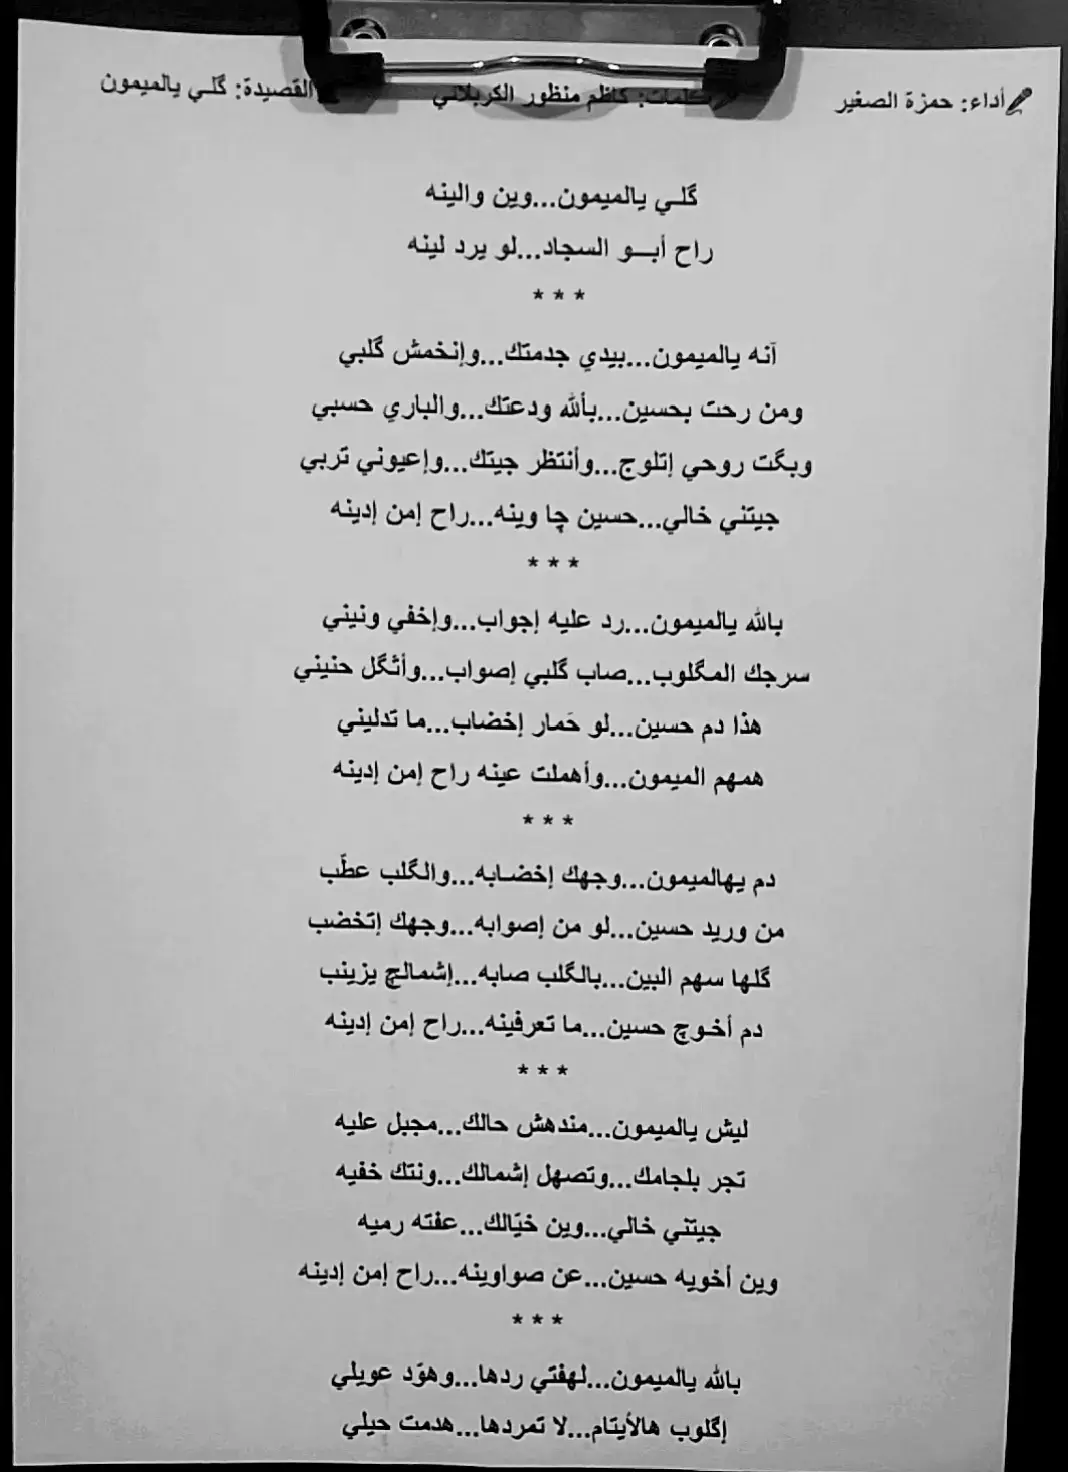 أداء: حمزة الصغير كلمات: كاظم منظور الكربلائي القصيدة: گلـي يالميمون
گلـي يالميمون...وين والينه
راح أبـــو السجاد...لو يرد لينه
* * *
آنه يالميمون...بيدي جدمتك...وإنخمش گلبي
ومن رحت بحسين...بألله ودعتك...والباري حسبي
وبگت روحي إتلوج...وأنتظر جيتك...وإعيوني تربي
جيتني خالي...حسين چا وينه...راح إمن إدينه
* * *
بالله يالميمون...رد عليه إجواب...وإخفي ونيني
سرجك المگلوب...صاب گلبي إصواب...وأثگل حنيني
هذا دم حسين...لو حَمار إخضاب...ما تدليني
همهم الميمون...وأهملت عينه راح إمن إدينه
* * *
دم يهالميمون...وجهك إخضـابه...والگلب عطّب
من وريد حسين...لو من إصوابه...وجهك إتخضب
گلها سهم البين...بالگلب صابه...إشمالچ يزينب
دم أخـوچ حسين...ما تعرفينه...راح إمن إدينه
* * *
ليش يالميمون...مندهش حالك...مجبل عليه
تجر بلجامك...وتصهل إشمالك...ونتك خفيه
جيتني خالي...وين خيّالك...عفته رميه
وين أخويه حسين...عن صواوينه...راح إمن إدينه
* * *
بالله يالميمون...لهفتي ردها...وهوّد عويلي
إگلوب هالأيتام...لا تمردها...هدمت حيلي